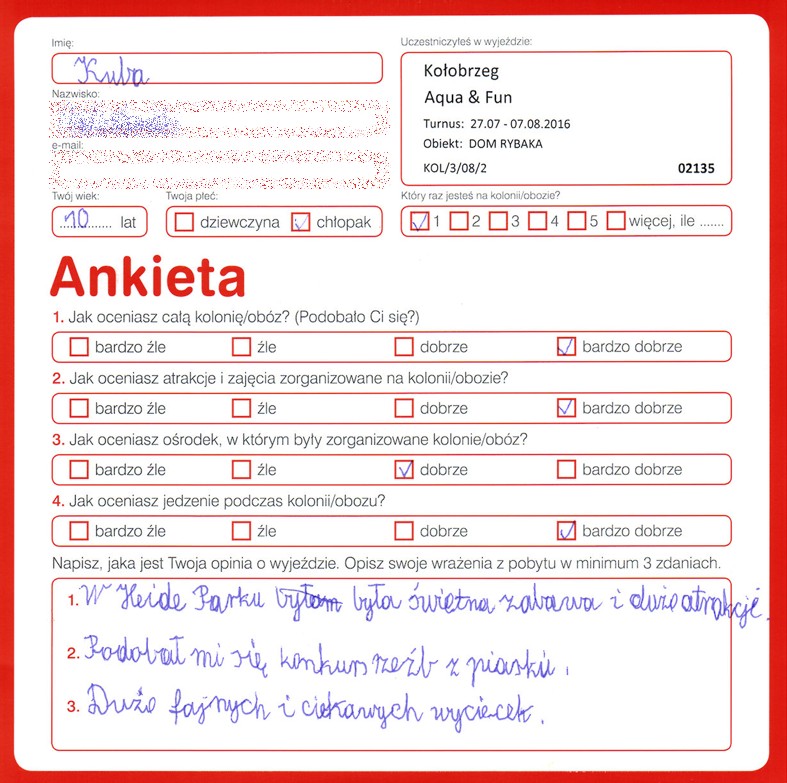 Imię:
Kuba
Uczestniczyłeś w wyjeździe:
Kołobrzeg
Aqua & Fun
Turnus: 27.07 - 07.08.2016
Obiekt: DOM RYBAKA
KOL/3/08/2 02135
Nazwisko:
e-mail:
Twój wiek:
10 lat
Twoja płeć:
dziewczyna chłopak
Który raz jesteś na kolonii/obozie?
1 2 3 4 5 więcej, ile .......
Ankieta
1. Jak oceniasz całą kolonię/obóz? (Podobało Ci się?)
bardzo źle źle dobrze bardzo dobrze
2. Jak oceniasz atrakcje i zajęcia zorganizowane na kolonii/obozie?
bardzo źle źle dobrze bardzo dobrze
3. Jak oceniasz ośrodek, w którym były zorganizowane kolonie/obóz?
bardzo źle źle dobrze bardzo dobrze
4. Jak oceniasz jedzenie podczas kolonii/obozu?
bardzo źle źle dobrze bardzo dobrze
Napisz, jaka jest Twoja opinia o wyjeździe. Opisz swoje wrażenia z pobytu w minimum 3 zdaniach.
1. W Heide Parku była świetna zabawa i duże atrakcje.
2. Podobał mi się konkurs rzeźb z piasku.
3. Dużo fajnych i ciekawych wycieczek.